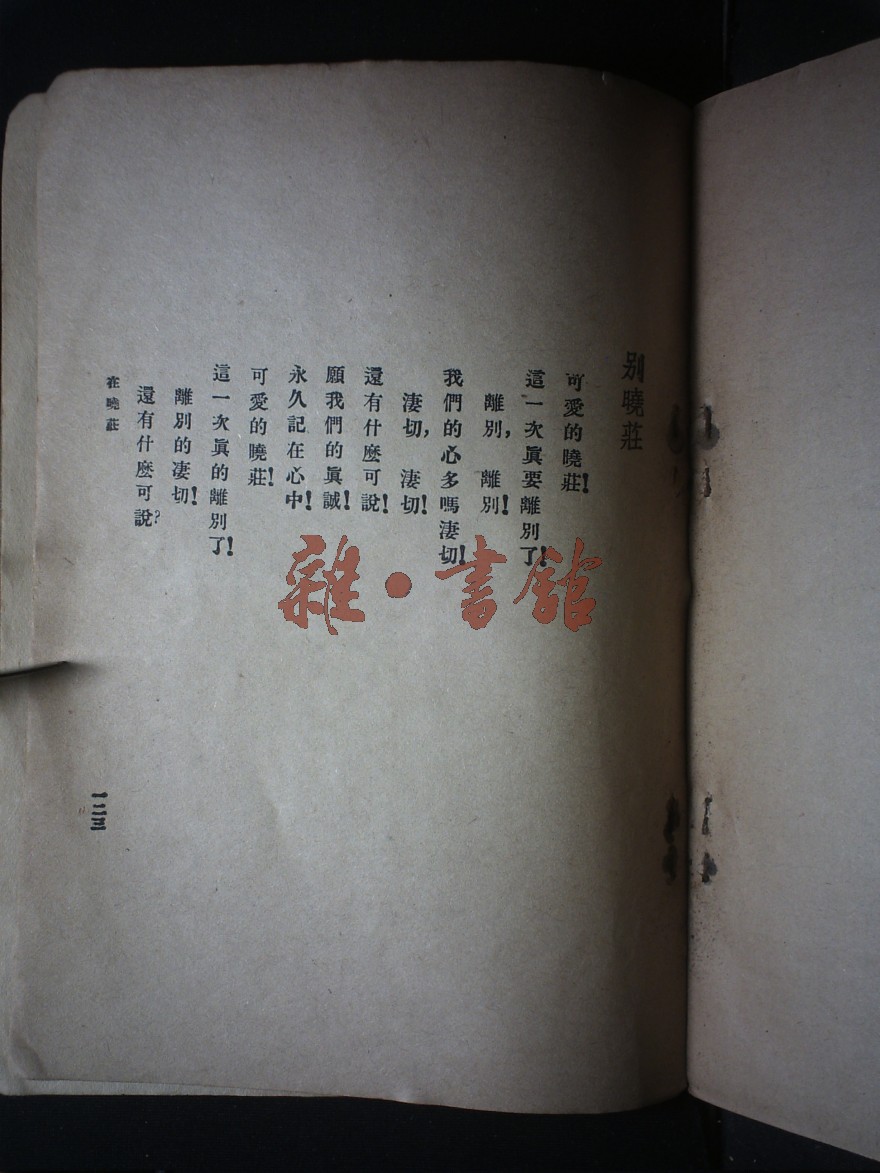 別曉莊
可愛的曉莊！
這一次眞要離別了！
離別，離別！
我們的心多嗎淒切！
淒切，淒切！
還有什麽可說！
願我們的眞誠！
永久記在心中！
可愛的曉莊！
這一次眞的離別了！
離別的淒切！
還有什麽可說？
在曉莊
一二三
雜·書館